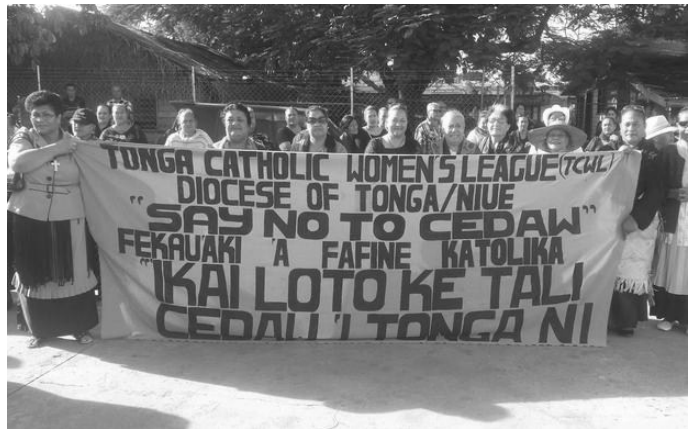 TONGA CATHOLIC WOMEN'S LEAGUE (TCWL)
DIOCESE OF TONGA/NIUE
"SAY NO TO CEDAW"
FEKAU'AKI 'A FAFINE KATOLIKA
"IKAI LOTO KE TALI
CEDAW 'I TONGA NI